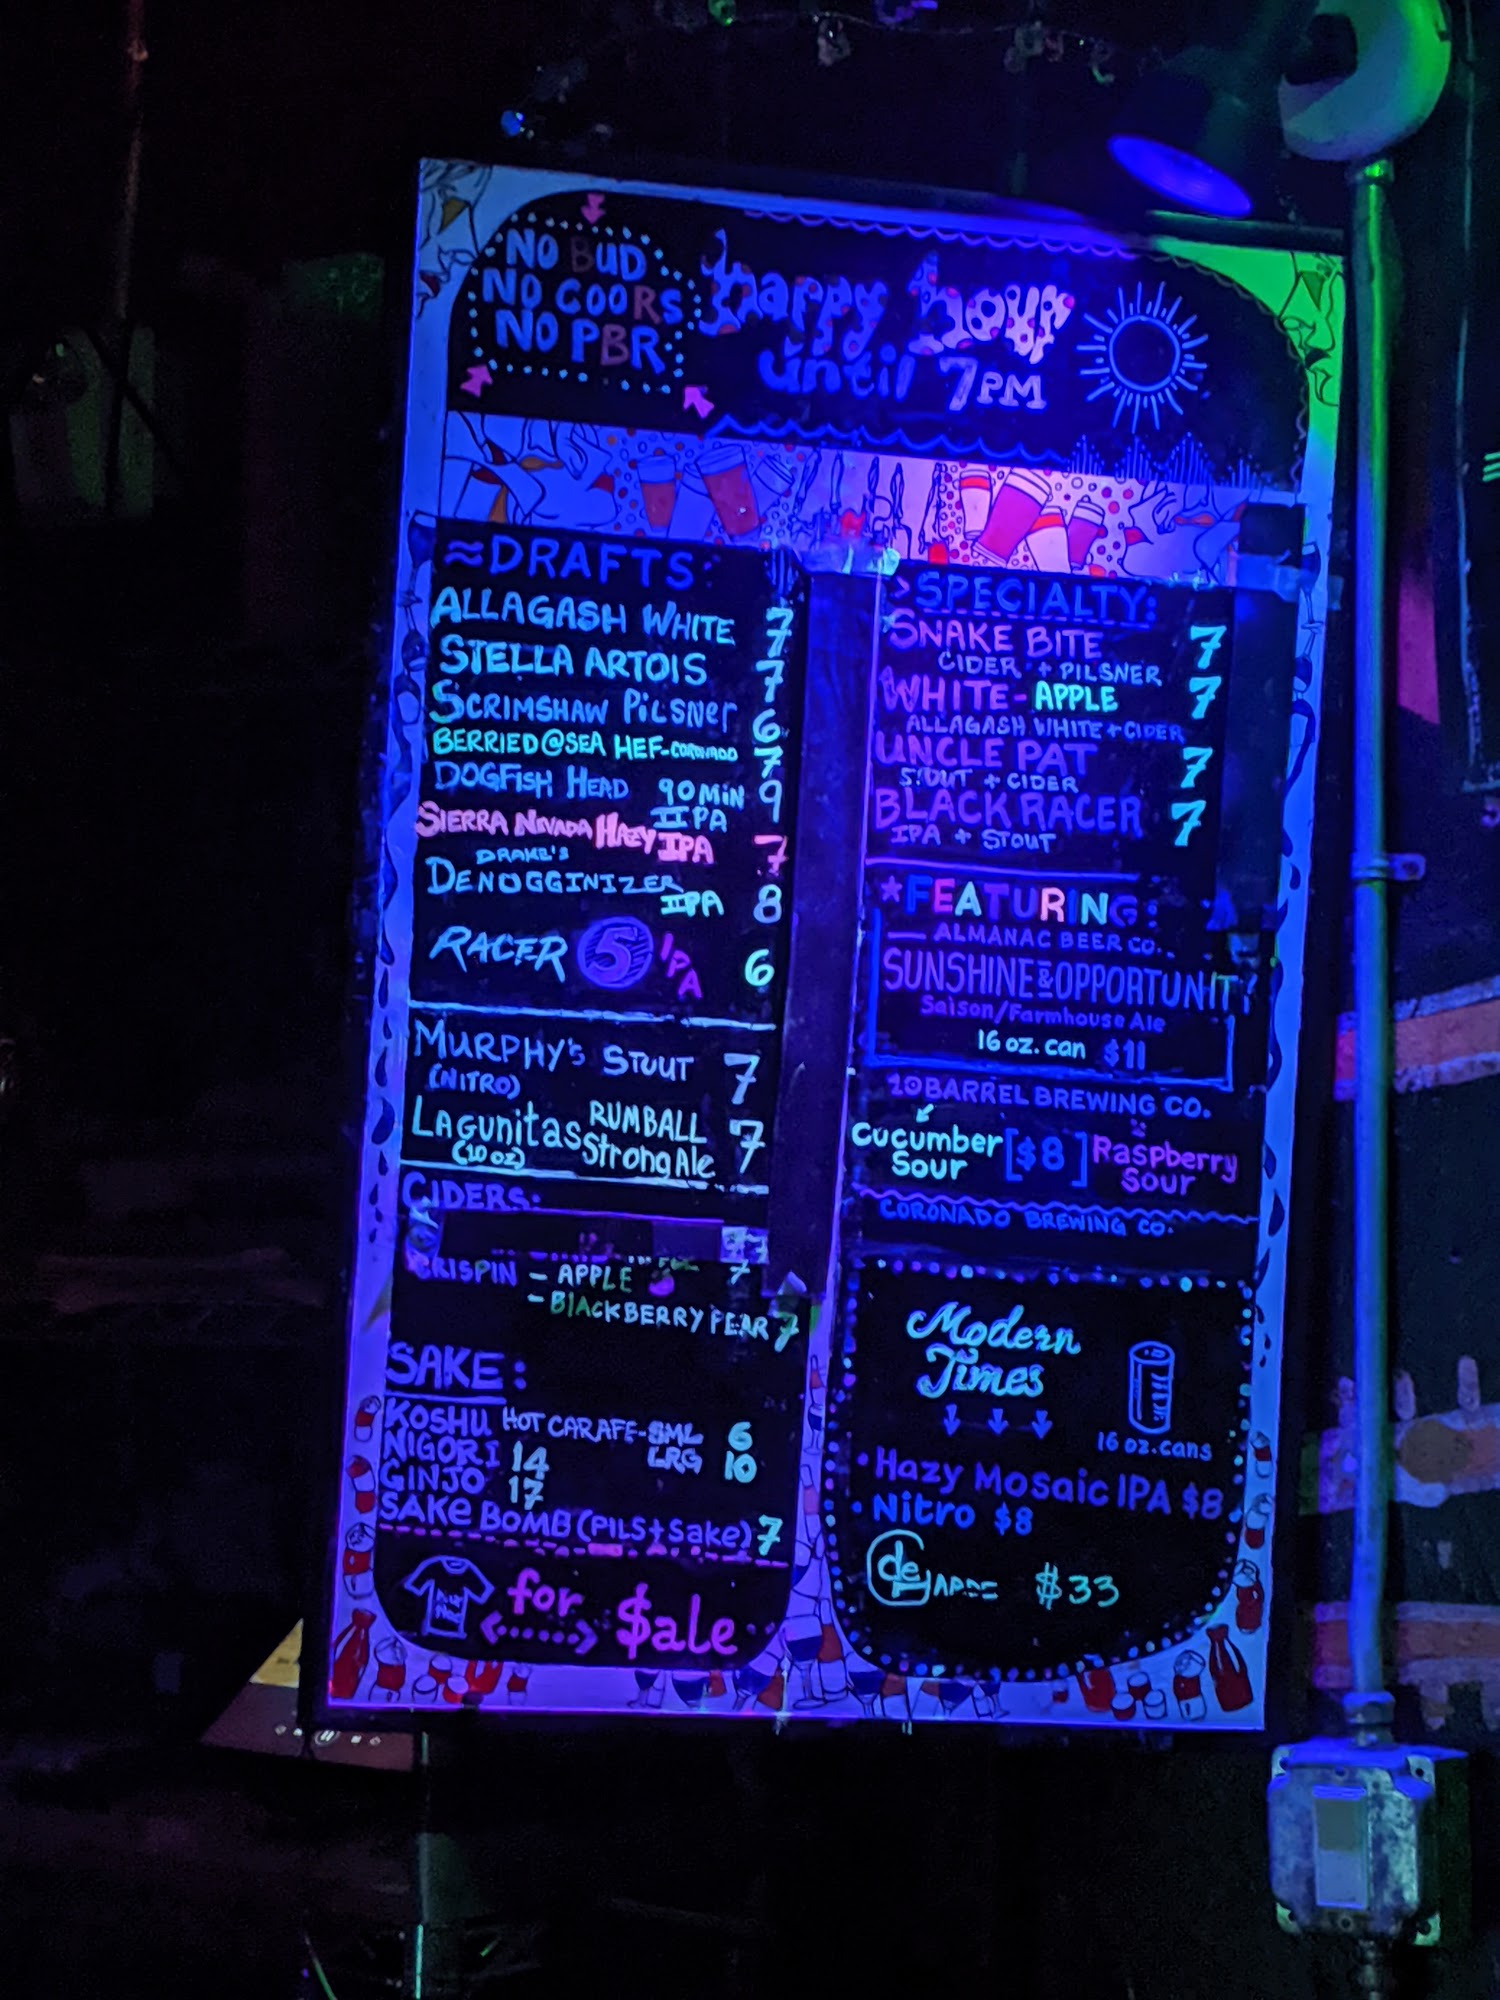 NO BUD
NO COORS
NO PBR
happy hour
until 7PM
≈DRAFTS:
ALLAGASH WHITE 7
STELLA ARTOIS 7
SCRIMSHAW PILSNER 6
BERRIED@SEA HEF-CORONADO 7
DOGFISH HEAD 90 MIN 9
IIPA
SIERRA NEVADA HAZY IPA 7
DRAKE'S
DENOGGINIZER 8
IIPA
RACER 5 IPA 6
MURPHY'S STOUT 7
(NITRO)
LAGUNITAS RUMBALL 7
(10 oz) Strong Ale
CIDERS:
CRISPIN - APPLE 7
- BLACKBERRY PEAR 7
SAKE:
KOSHU HOT CARAFE-SML 6
LRG 10
NIGORI 14
GINJO 17
SAKE BOMB (PILS + Sake) 7
for $ale
>SPECIALTY:
SNAKE BITE 7
CIDER + PILSNER
WHITE-APPLE 7
ALLAGASH WHITE + CIDER
UNCLE PAT 7
STOUT + CIDER
BLACK RACER 7
IPA + STOUT
*FEATURING:
— ALMANAC BEER CO.
SUNSHINE & OPPORTUNITY
Saison/Farmhouse Ale
16 oz. can $11
10 BARREL BREWING CO.
Cucumber [$8] Raspberry
Sour Sour
CORONADO BREWING CO.
Modern
Times
16 oz. cans
• Hazy Mosaic IPA $8
• Nitro $8
de GARDE $33